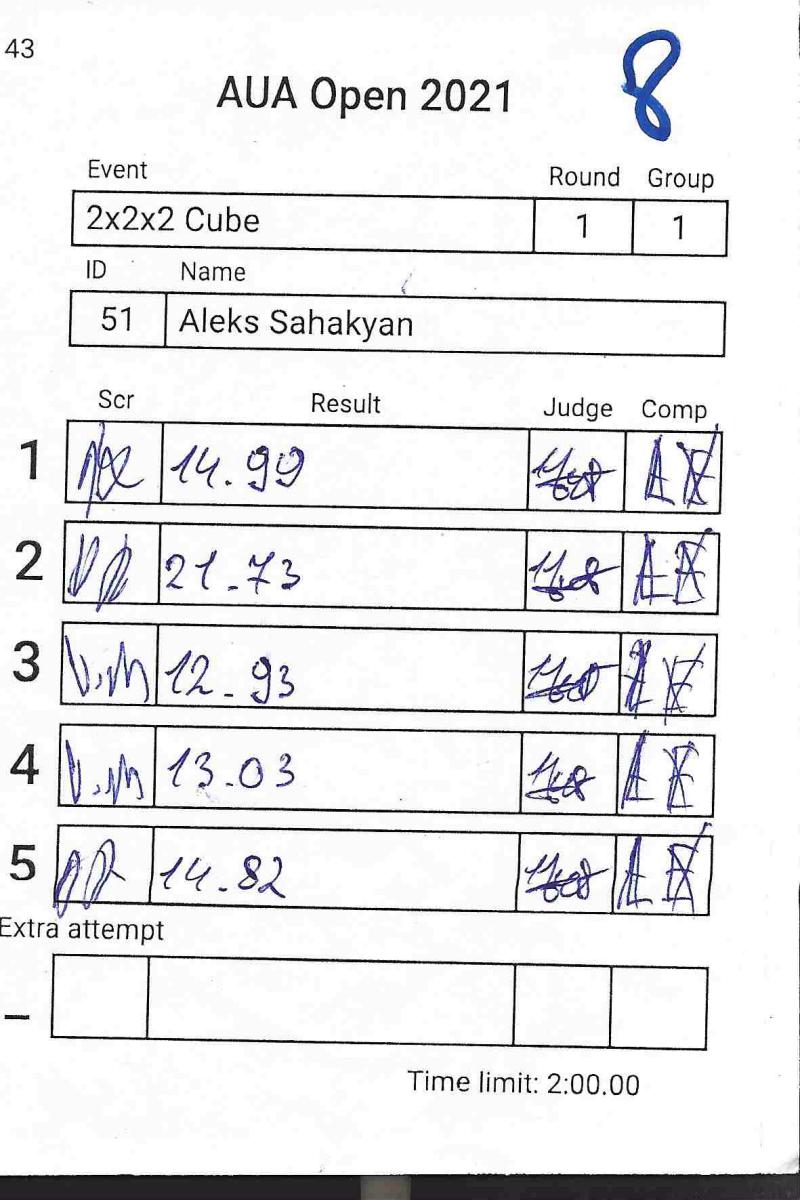 43
8
AUA Open 2021
Event Round Group
2x2x2 Cube 1 1
ID Name
51 Aleks Sahakyan
Scr Result Judge Comp
1 14.99
2 21.73
3 V.M 12.93
4 V.M 13.03
5 14.82
Extra attempt
_
Time limit: 2:00.00